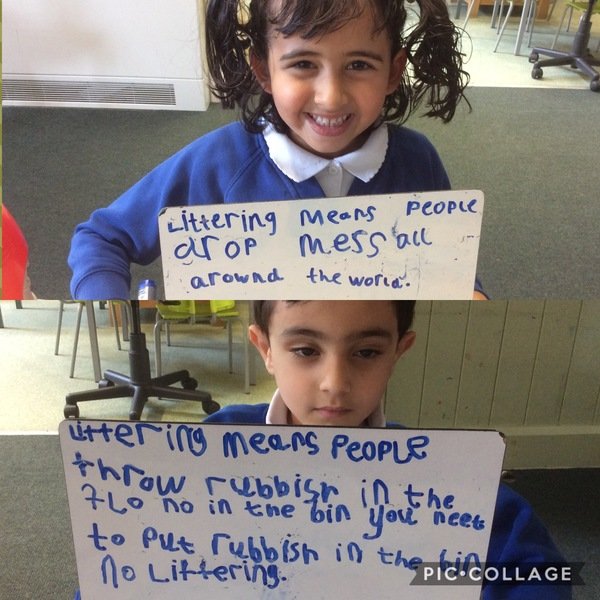 Littering means people
drop mess all
around the world.
Littering means people
throw rubbish in the
flo no in the bin you neet
to put rubbish in the bin
no Littering.
PIC•COLLAGE